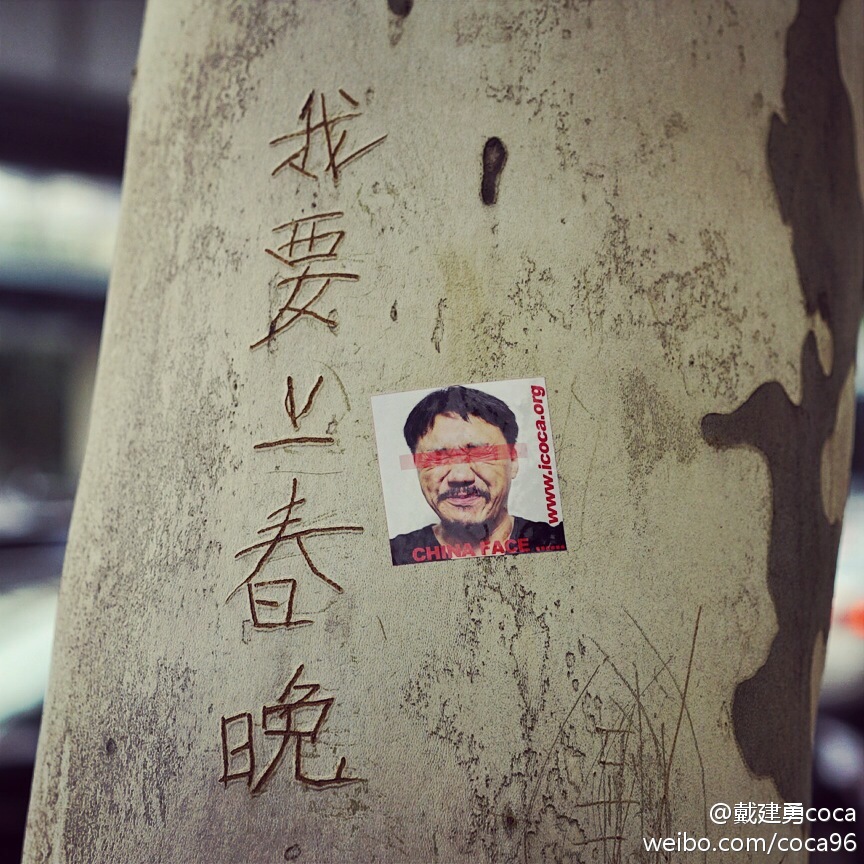 我要上春晚
www.icoca.org
CHINA FACE ......
@戴建勇coca
weibo.com/coca96